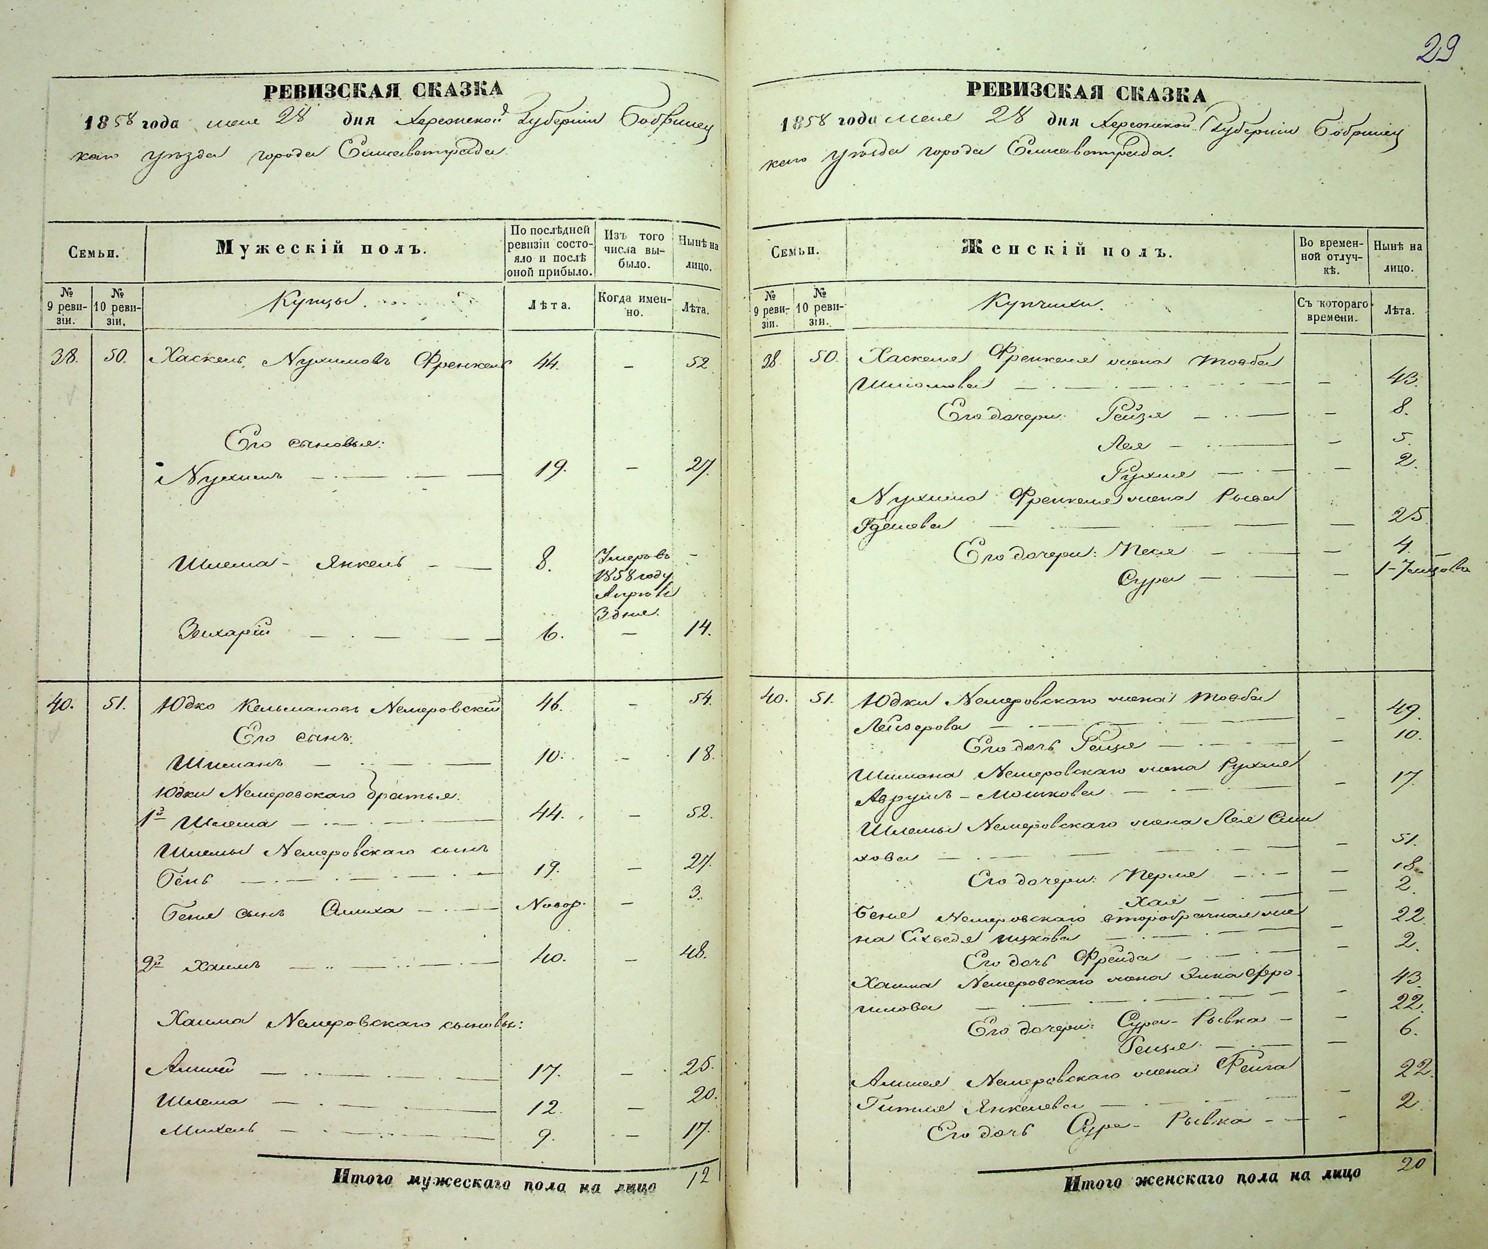 29
РЕВИЗСКАЯ СКАЗКА
1858 года мая 28 дня Херсонской Губернии Бобринец
каго уѣзда города Елисаветграда.
Семьи.
Мужескій полъ.
По послѣдней ревизіи состояло и послѣ оной прибыло.
Изъ того числа выбыло.
Нынѣ на лицо.
№ 9 ревизіи.
№ 10 ревизіи.
Купцы.
Лѣта.
Когда именно.
Лѣта.
38. 50. Хаскель Нухимовъ Френкель 44. — 52
Его сыновья:
Нухимъ — 19. — 27.
Шлема - Янкель — 8. Умеръ въ —
1858 году
Апрѣля
3 дня.
Захарій — 6. — 14.
40. 51. Юдко Кельмановъ Немеровскій 46. — 54.
Его сынъ:
Шимонъ — 10. — 18.
Юдки Немеровскаго братья.
1й Шлема — 44. — 52.
Шлемы Немеровскаго сынъ
Бень — 19. — 27.
Беня сынъ Симха — Новор. — 3.
2й Хаимъ — 40. — 48.
Хаима Немеровскаго сыновья:
Аншей — 17. — 25.
Шлема — 12. — 20.
Михель — 9. — 17.
Итого мужескаго пола на лицо 12
РЕВИЗСКАЯ СКАЗКА
1858 года мая 28 дня Херсонской Губерніи Бобринец
каго уѣзда города Елисаветграда.
Семьи.
Женскій полъ.
Во временной отлучкѣ.
Нынѣ на лицо.
№ 9 ревизіи.
№ 10 ревизіи.
Купчихи.
Съ котораго времени.
Лѣта.
38. 50. Хаскеля Френкеля жена Товба
Шліомова — — 43.
Его дочери: Рейзя — — 8.
Лея — — 5.
Рухля — — 2.
Нухима Френкеля жена Рыва
— — 25
Его дочери: Песя — — 4.
Сура — — 1-7 мѣсяцовъ
40. 51. Юдки Немеровскаго жена Товба
Лейзерова — — 49.
Его дочь Рейзя — — 10.
Шимона Немеровскаго жена Рухля
Аврумъ - Мошкова — — 17.
Шлемы Немеровскаго жена Лея Сим
хова — — 51.
Его дочери: Перля — — 18.
Хая — — 2.
Беня Немеровскаго второбрачная же
на Ицкова — — 22
Его дочь Фрейда — — 2.
Хаима Немеровскаго жена Фро
имова — — 43.
Его дочери: Сура - Рывка — — 22.
Рейзя — — 6.
Аншея Немеровскаго жена Фейга
Гитля Янкелева — — 22.
Его дочь Сура - Рывка — — 2
Итого женскаго пола на лицо 20